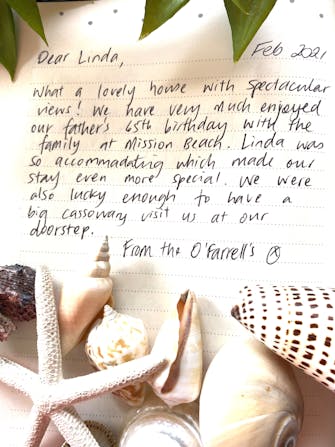 Dear Linda,
Feb 2021
What a lovely house with spectacular
views! We have very much enjoyed
our father's 65th birthday with the
family at Mission Beach. Linda was
so accommadating which made our
stay even more special. We were
also lucky enough to have a
big cassowary visit us at our
doorstep.
From the O'Farrell's